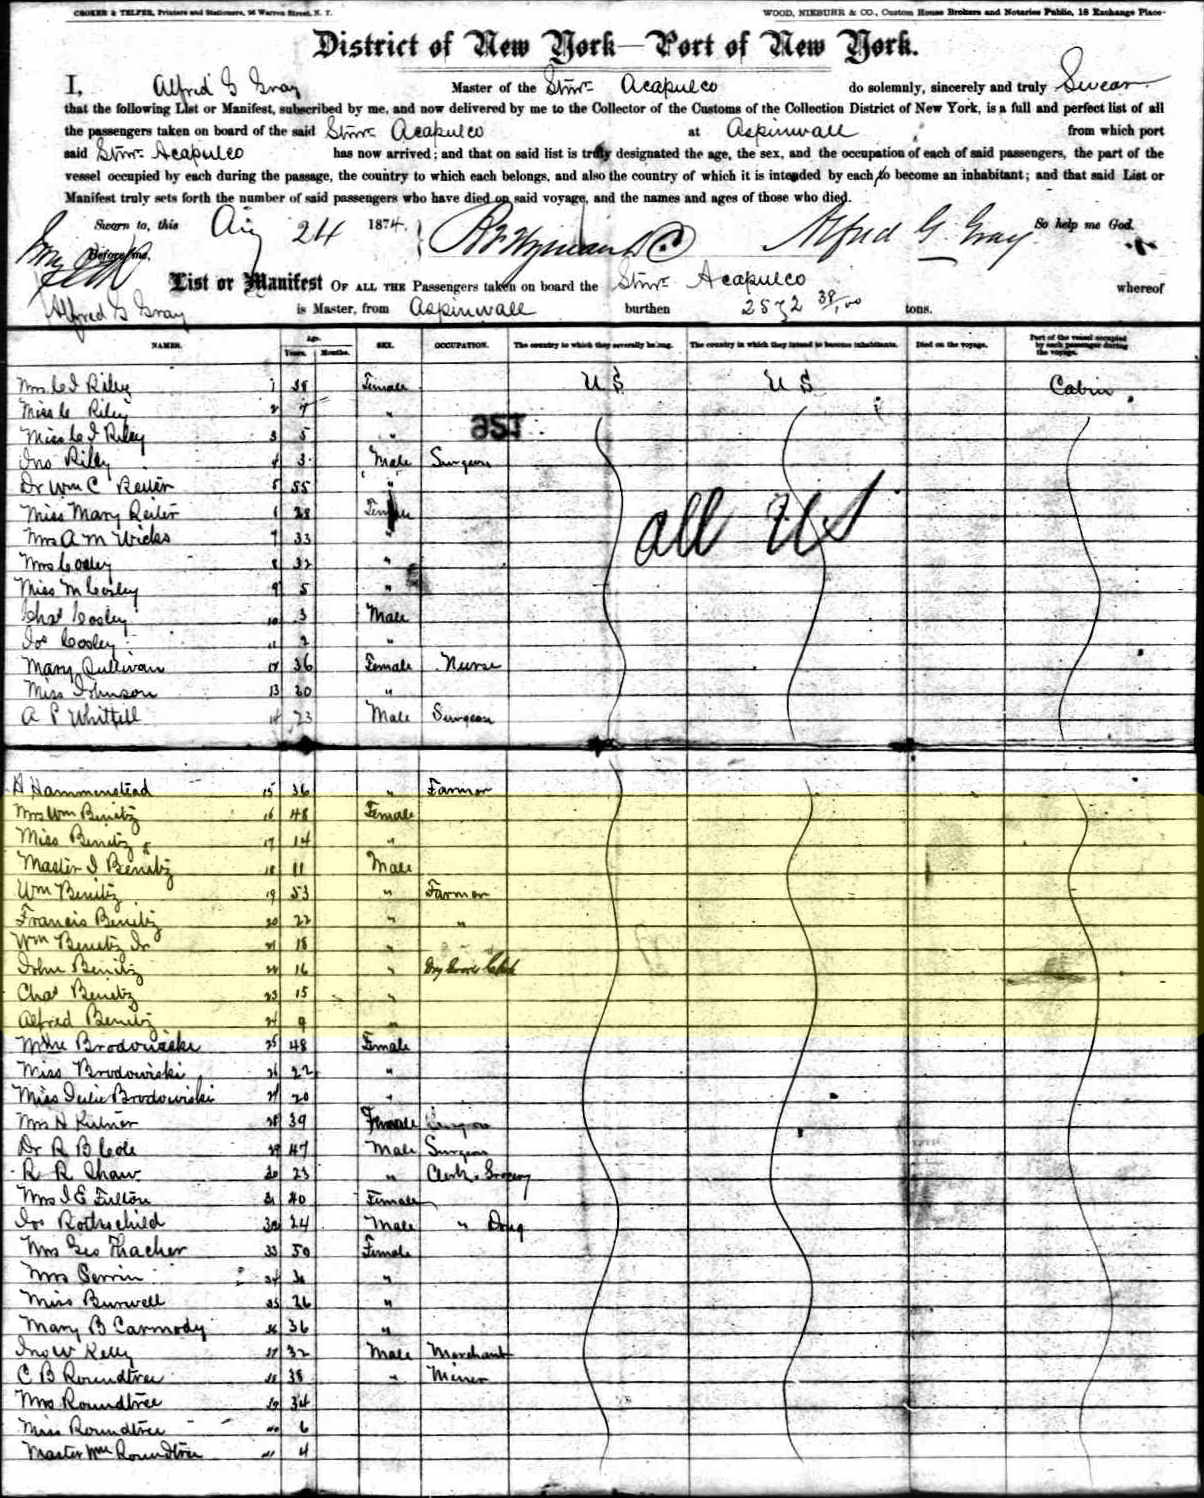 CROKER & TELFER, Printers and Stationers, 96 Warren Street, N. Y. WOOD, NIEBUHR & CO., Custom House Brokers and Notaries Public, 18 Exchange Place
District of New York—Port of New York.
I, Alfred G Gray Master of the Stmr Acapulco do solemnly, sincerely and truly Swear
that the following List or Manifest, subscribed by me, and now delivered by me to the Collector of the Customs of the Collection District of New York, is a full and perfect list of all
the passengers taken on board of the said Stmr Acapulco at Aspinwall from which port
said Stmr Acapulco has now arrived; and that on said list is truly designated the age, the sex, and the occupation of each of said passengers, the part of the
vessel occupied by each during the passage, the country to which each belongs, and also the country of which it is intended by each to become an inhabitant; and that said List or
Manifest truly sets forth the number of said passengers who have died on said voyage, and the names and ages of those who died.
Sworn to, this Aug 24 1874. Alfred G. Gray So help me God.
Before me,
List or Manifest OF ALL THE Passengers taken on board the Stmr Acapulco whereof
Alfred G Gray is Master, from Aspinwall burthen 2572 38/100 tons.
NAMES. Age. Years. Months. SEX. OCCUPATION. The country to which they severally belong. The country in which they intend to become inhabitants. Died on the voyage. Part of the vessel occupied by each passenger during the voyage.
Mrs C I Riley 1 38 Female U S U S Cabin
Miss C Riley 2 7 "
Miss C I Riley 3 5 "
126
Jno Riley 4 3 Male Surgeon
Dr Wm C Reiter 5 55 "
Miss Mary Reiter 6 28 Female
all US
Mrs A M Wicks 7 33 "
Mrs Cosley 8 32 "
Miss M Cosley 9 5 "
Chas Cosley 10 3 Male
Jos Cosley 11 2 "
Mary Sullivan 12 36 Female Nurse
Miss Johnson 13 20 "
A P Whittell 14 23 Male Surgeon
H Hammenstead 15 36 " Farmer
Mrs Wm Benitz 16 48 Female
Miss Benitz 17 14 "
Master I Benitz 18 11 Male
Wm Benitz 19 53 " Farmer
Francis Benitz 20 22 " "
Wm Benitz Jr 21 18 "
John Benitz 22 16 " Dry Goods Clerk
Chas Benitz 23 15 "
Alfred Benitz 24 9 "
Mme Brodowiski 25 48 Female
Miss Brodowiski 26 22 "
Miss Julie Brodowiski 27 20 "
Mrs H Kutner 28 39 Female
Dr R B Cole 29 47 Male Surgeon
R R Shaw 30 23 " Clerk, Grocery
Mrs J E Fulton 31 40 Female
Jos Rothschild 32 24 Male " Drug
Mrs Geo Thacher 33 50 Female
Mrs Perrin 34 30 "
Miss Burwell 35 26 "
Mary B Carmody 36 36 "
Jno W Kelly 37 32 Male Merchant
C B Roundtree 38 38 " Miner
Mrs Roundtree 39 34
Miss Roundtree 40 6
Master Wm Roundtree 41 4